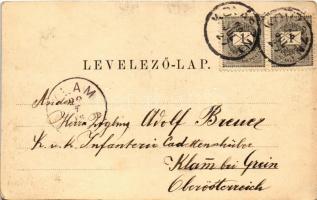 LEVELEZŐ-LAP.
KLAM
An den
Herrn Zögling Adolf Breuer
K. u. k. Infanterie Cadettenschüler
Klam bei Grein
Oberösterreich